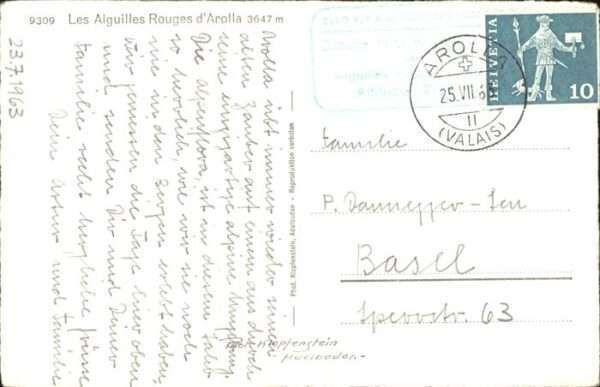 9309 Les Aiguilles Rouges d'Arolla 3647 m
23.7.1963
Arolla übt immer wieder seinen
alten Zauber auf einem aus durch
seine einzigartige alpine Umgebung.
Die Alpenflora ist in diesem Jahr
so herrlich, wie wir sie noch
nie in den Bergen erlebt haben,
Wir geniessen die Tage hier oben
und senden Dir und Deiner
Familie recht herzliche Grüsse
Dein Artur und Familie
Phot. Klopfenstein, Adelboden - Reproduktion verboten
Klopfenstein
Adelboden
AROLLA
25.VII.6
II
(VALAIS)
HELVETIA
10
Familie
P. Dannegger-Jen
Basel
Sperrstr. 63